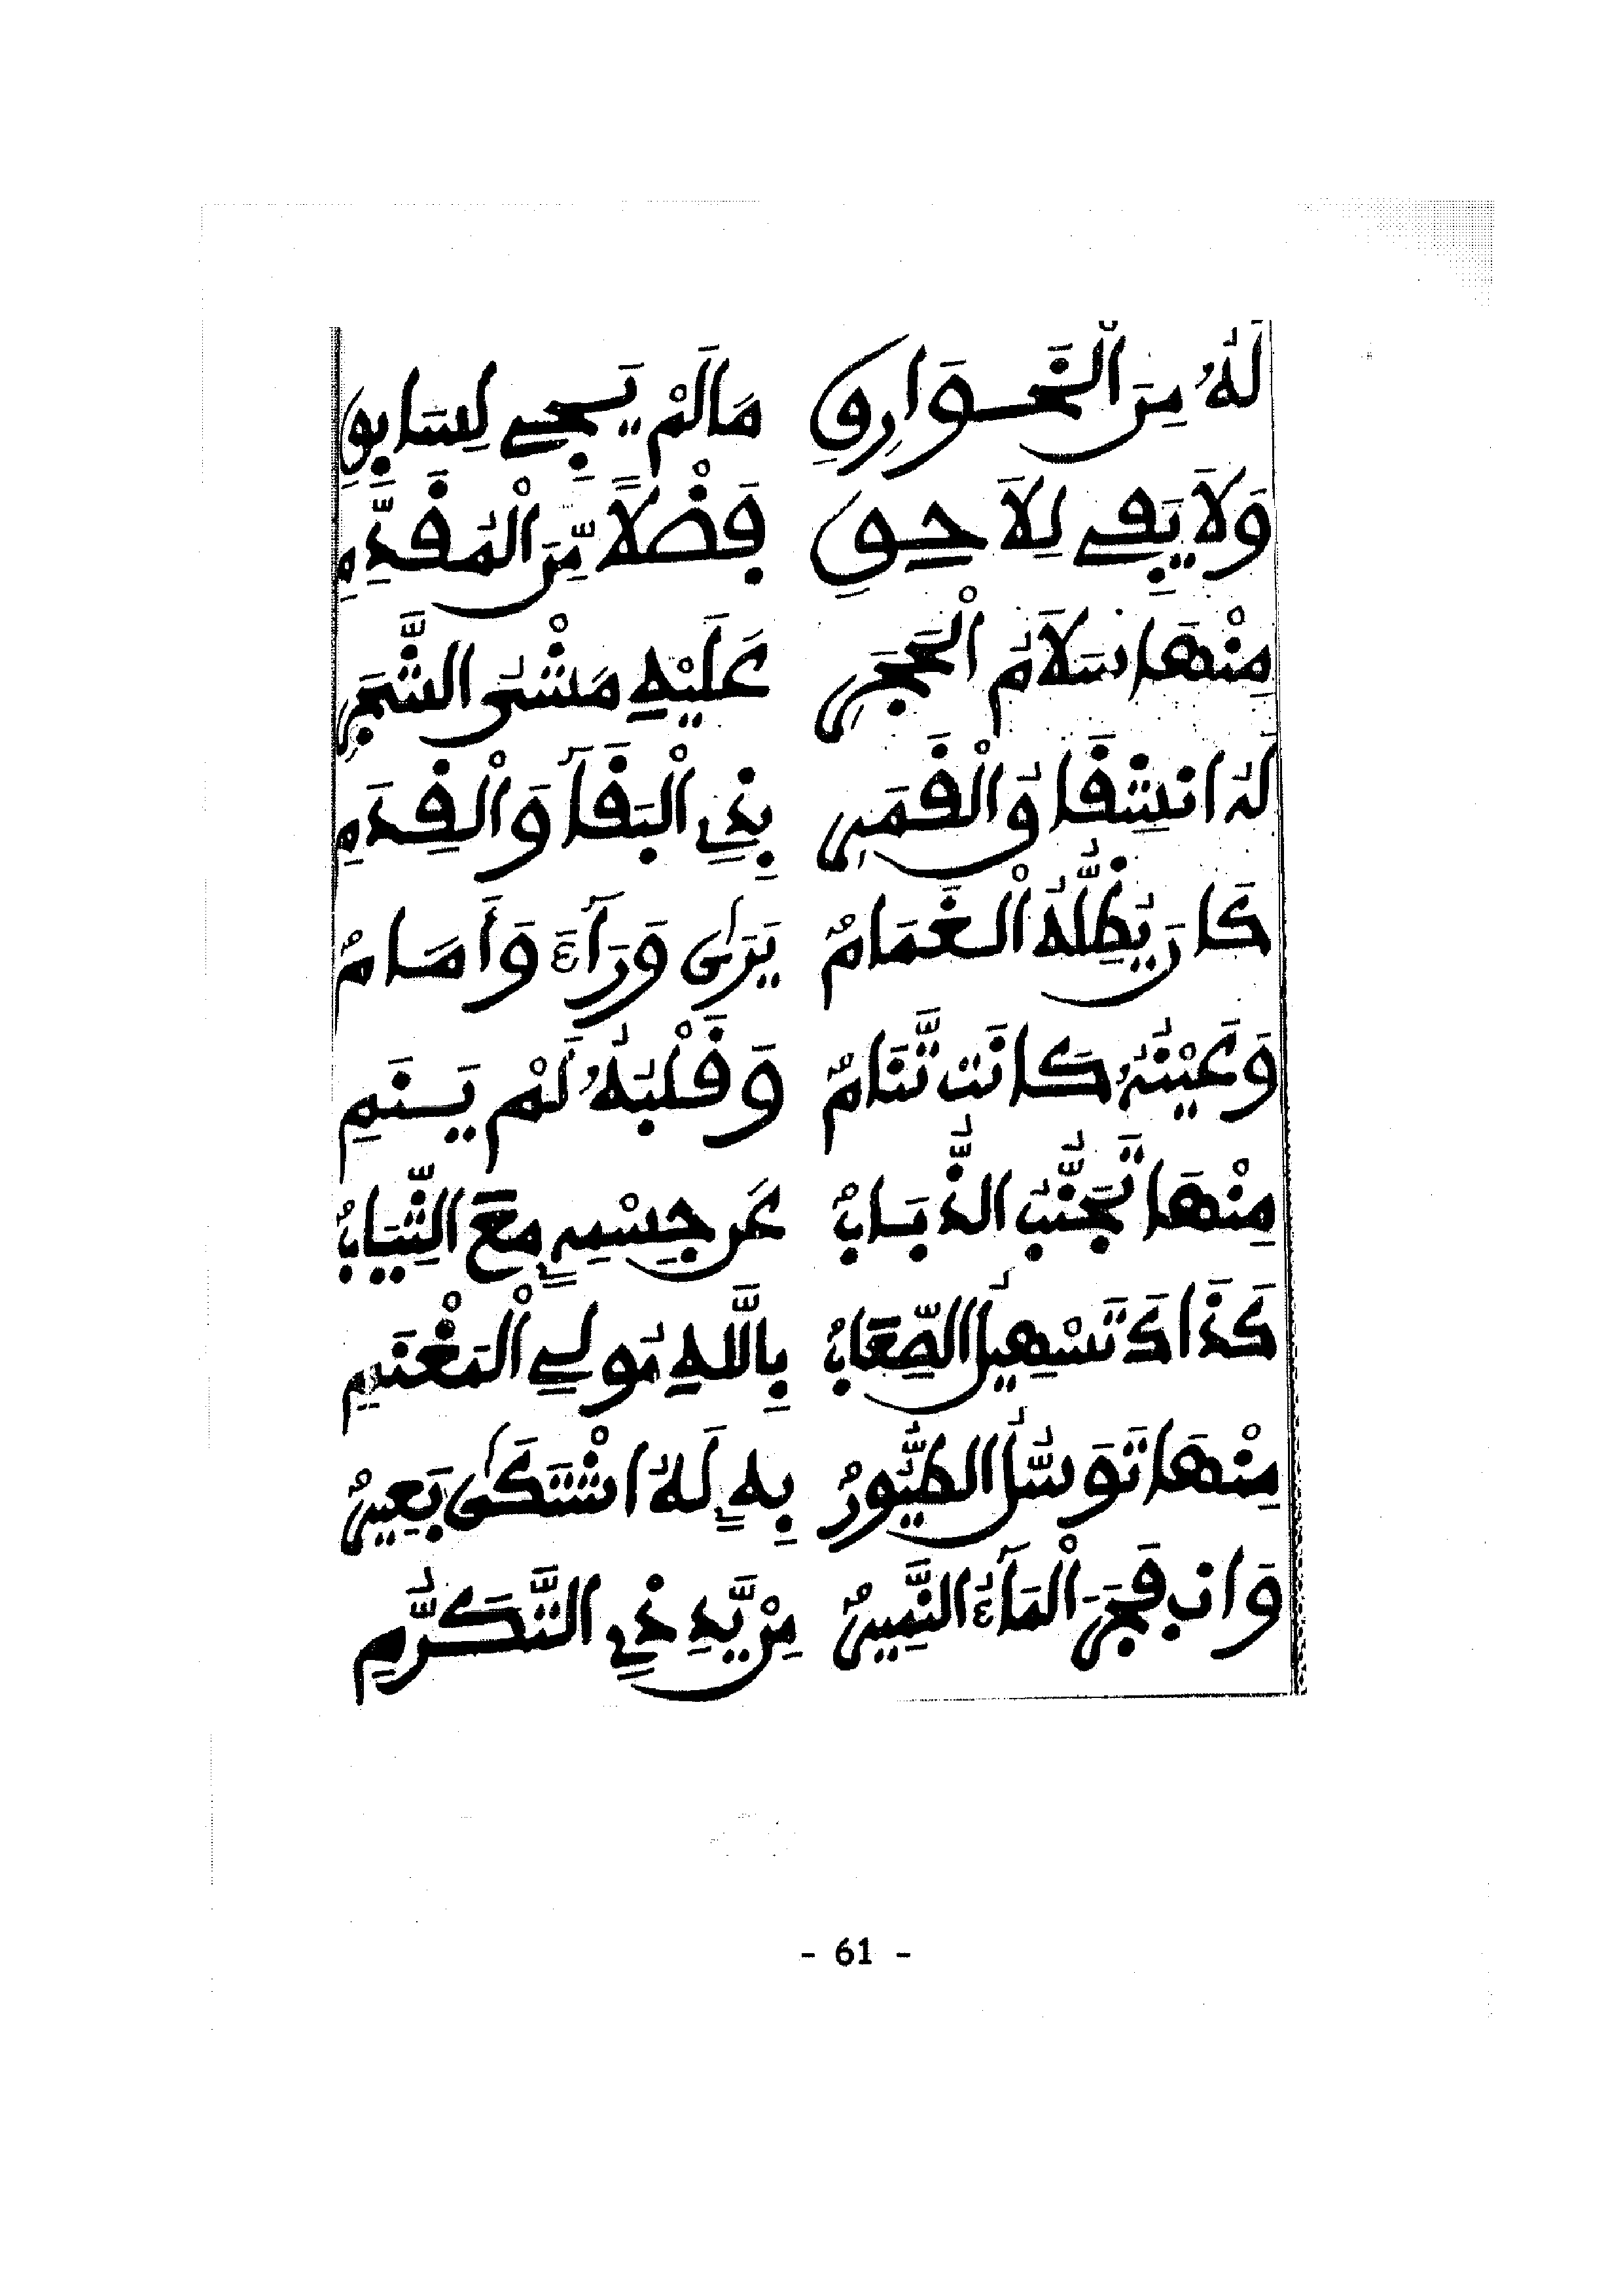 لَهُ مِنَ الْخَوَارِقِ مَا لَمْ يَجِي لِسَابِقِ
وَلَا يَفِي لِلَاحِقِ فَضْلًا مِّنَ الْمُقَدِّمِ
مِنْهَا سَلَامُ الْحَجَرِ عَلَيْهِ مَشْىُ الشَّجَرِ
لَهُ انْشِقَاقُ الْقَمَرِ بِذِي الْبَقَآ وَالْقِدَمِ
كَانَ يُظِلُّهُ الْغَمَامُ يَرَىٰ وَرَآءَ وَأَمَامُ
وَعَيْنُهُ كَانَت تَّنَامُ وَقَلْبُهُ لَمْ يَنَمِ
مِنْهَا تَجَنُّبُ الذُّبَابُ عَن جِسْمِهِ مَعَ الثِّيَابُ
كَذَاكَ تَسْهِيلُ الصِّعَابُ بِاللَّهِ مُولِي الْمَغْنَمِ
مِنْهَا تَوَسُّلُ الطُّيُورُ بِهِ لَهُ اشْتَكَىٰ بَعِيرُ
وَانفَجَرَ الْمَآءُ النَّمِيرُ مِنْ يَّدِ ذِي التَّكَرُّمِ
- 61 -